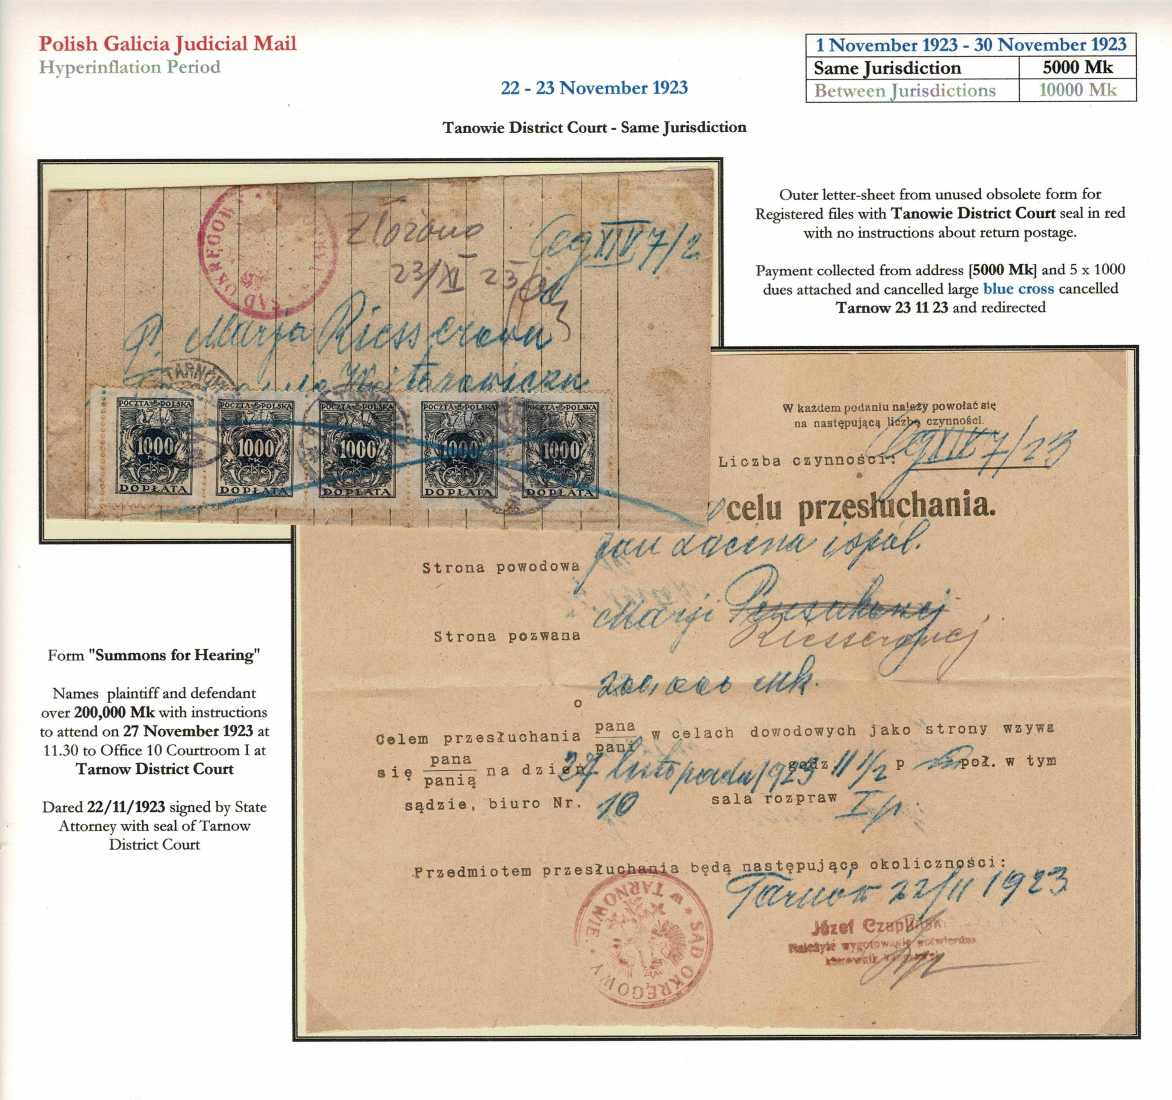 Polish Galicia Judicial Mail
Hyperinflation Period
1 November 1923 - 30 November 1923
Same Jurisdiction 5000 Mk
Between Jurisdictions 10000 Mk
22 - 23 November 1923
Tanowie District Court - Same Jurisdiction
Outer letter-sheet from unused obsolete form for
Registered files with Tanowie District Court seal in red
with no instructions about return postage.
Payment collected from address [5000 Mk] and 5 x 1000
dues attached and cancelled large blue cross cancelled
Tarnow 23 11 23 and redirected
SĄD OKRĘGOWY
Złożono
23/XI 23
Cg XIV 7/2
P. Marja Riesserowa
TARNÓW
POCZTA POLSKA POCZTA POLSKA POCZTA POLSKA POCZTA POLSKA POCZTA POLSKA
1000 1000 1000 1000 1000
MK MK MK MK MK
DOPŁATA DOPŁATA DOPŁATA DOPŁATA DOPŁATA
W każdem podaniu należy powołać się
na następującą liczbę czynności.
Liczba czynności: 7/23
celu przesłuchania.
Strona powodowa Jan i spól.
Strona pozwana Marji
Riesserowej
o 200.000 mk.
Celem przesłuchania pana/pani w celach dowodowych jako strony wzywa
się pana/panią na dzień 27 listopada 1923 godz. 11 1/2 p poł. w tym
sądzie, biuro Nr. 10 sala rozpraw I p.
Przedmiotem przesłuchania będą następujące okoliczności:
Tarnów 22/11 1923
SĄD OKRĘGOWY w TARNOWIE
Józef
Należyte wygotowanie potwierdza
Form "Summons for Hearing"
Names plaintiff and defendant
over 200,000 Mk with instructions
to attend on 27 November 1923 at
11.30 to Office 10 Courtroom I at
Tarnow District Court
Dared 22/11/1923 signed by State
Attorney with seal of Tarnow
District Court